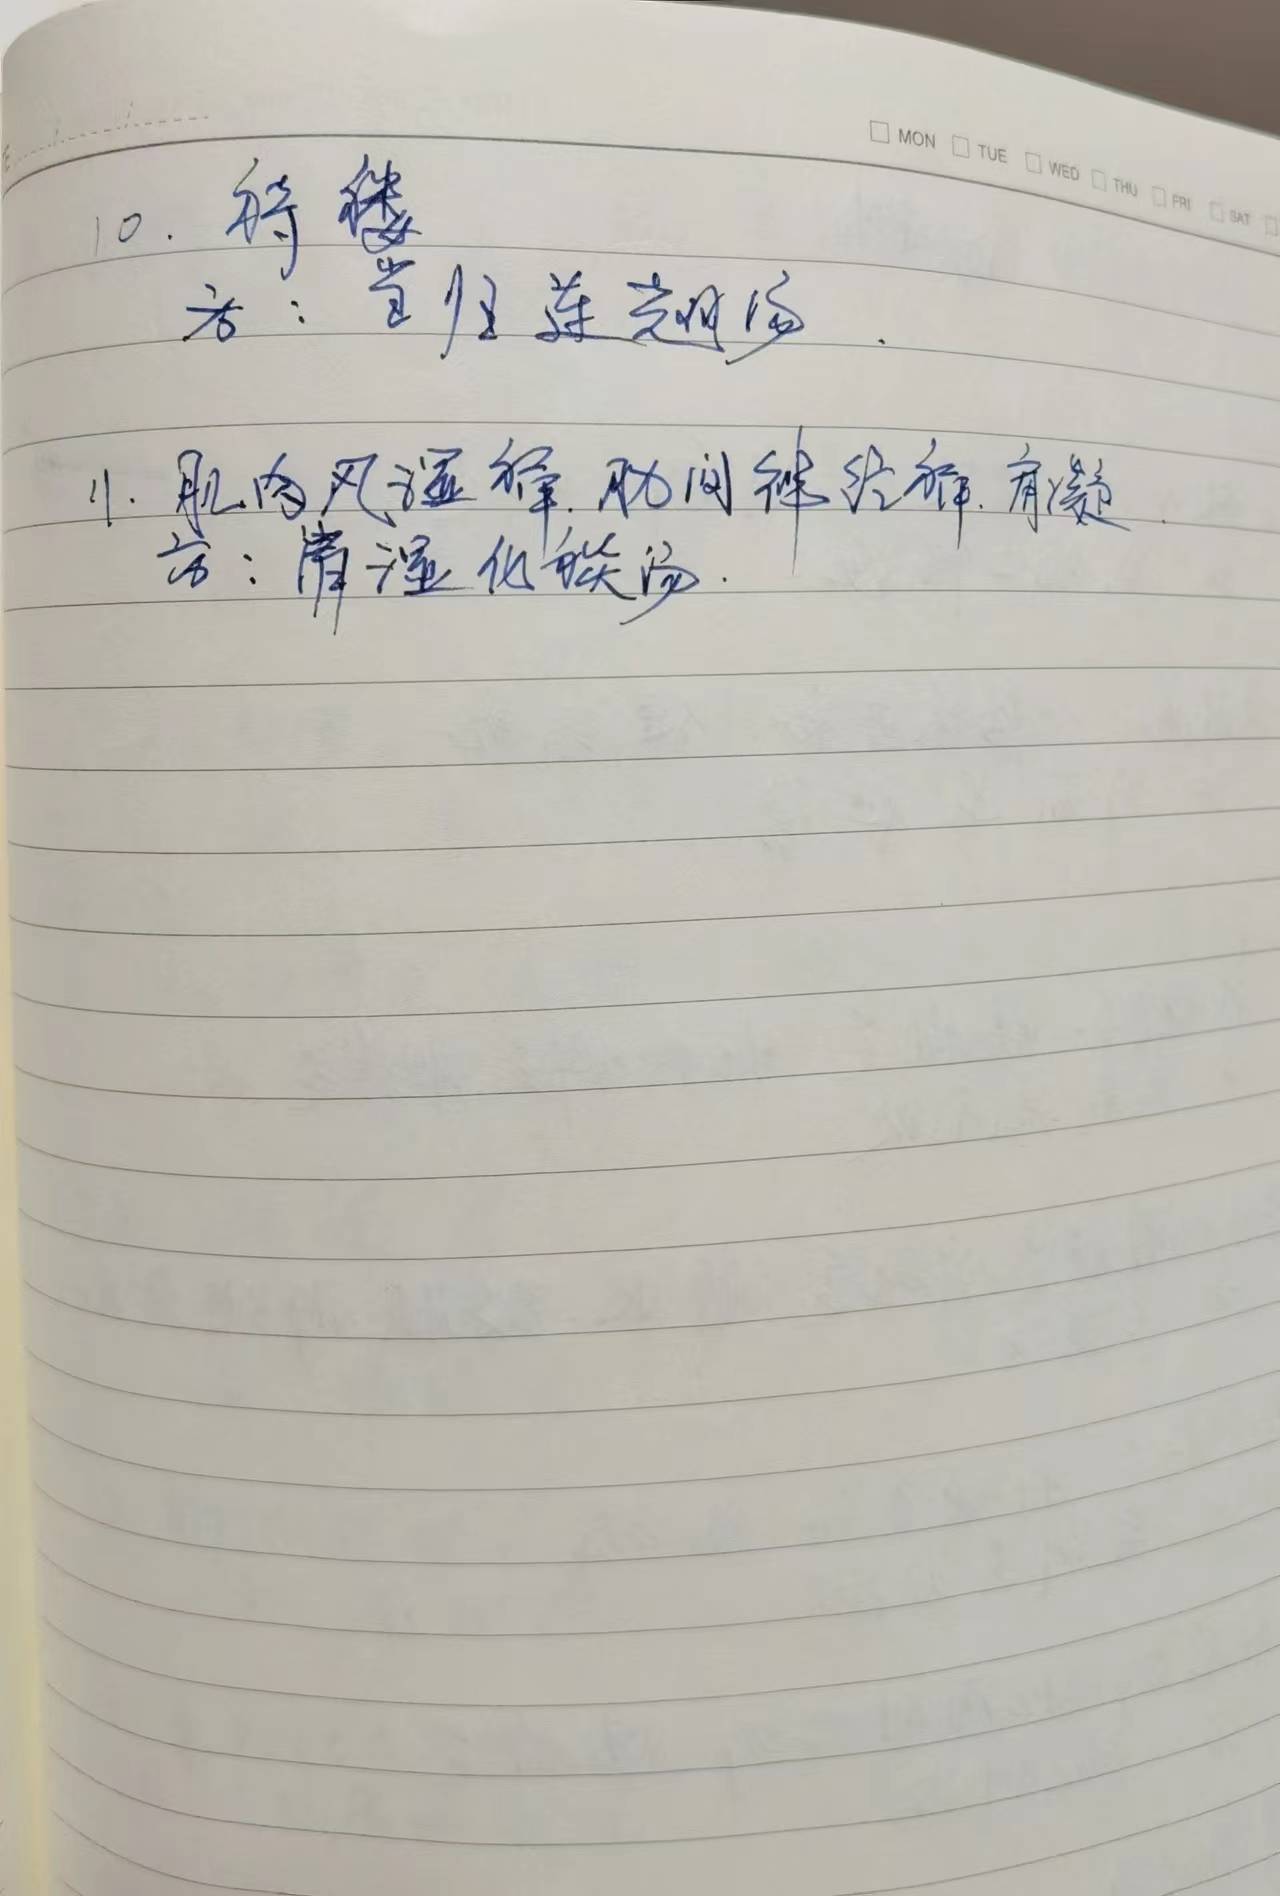 MON TUE WED THU FRI SAT
10. 痔瘘
方：当归莲翘汤.
11. 肌肉风湿痹. 肋间神经痹. 肩凝.
方：清湿化痰汤.